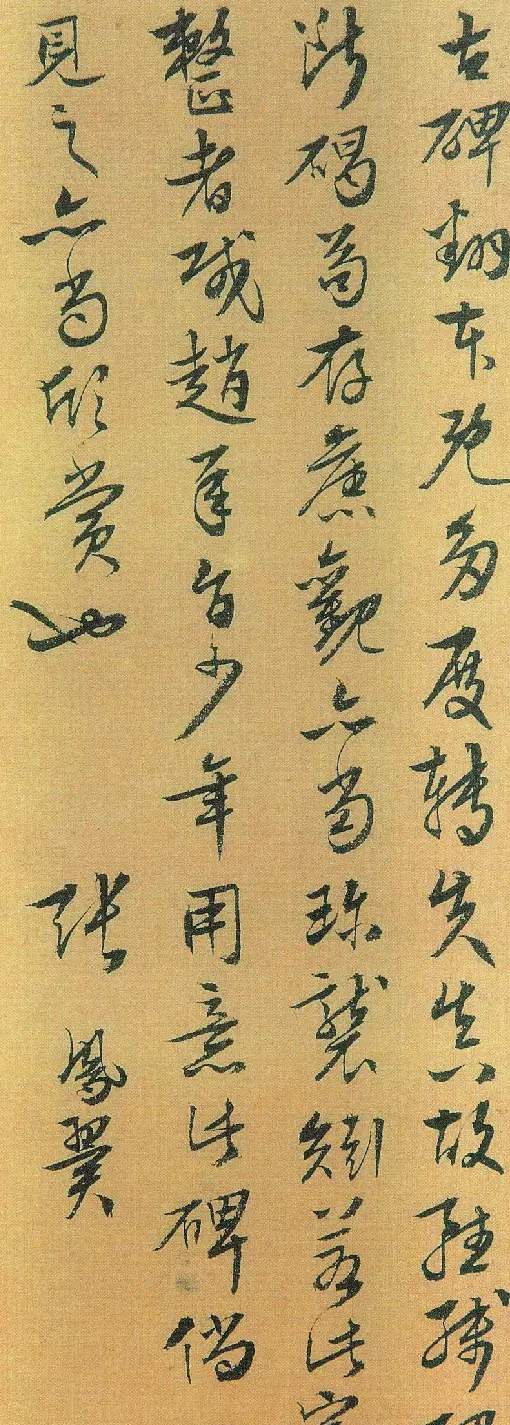 古碑翻本既多度轉失真故雖殘碑
斷碣苟存舊觀亦當珍襲矧若此完
整者哉趙承旨少年用意此碑倘
見之亦當欣賞也
張鳳翼